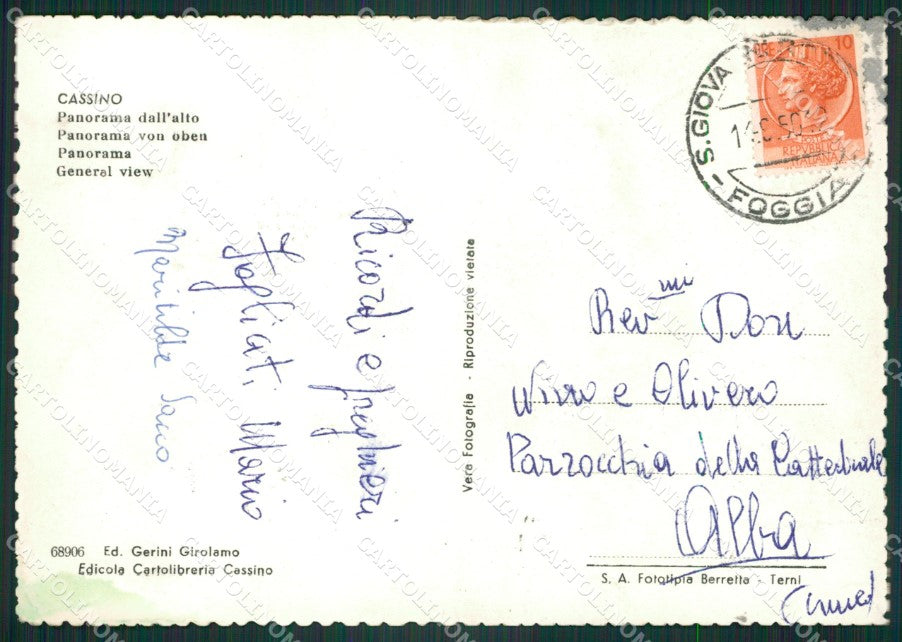 CASSINO
Panorama dall'alto
Panorama von oben
Panorama
General view
Ricordi e preghieri
Mario
Vera Fotografia - Riproduzione vietata
10
S. GIOVA
FOGGIA
REPUBBLICA
ITALIANA
Rev mi Don
e Olivero
Parrocchia della Cattedrale
Alba
68906 Ed. Gerini Girolamo
Edicola Cartolibreria Cassino
S. A. Fototipia Berretta - Terni
CARTOLINOMANIA